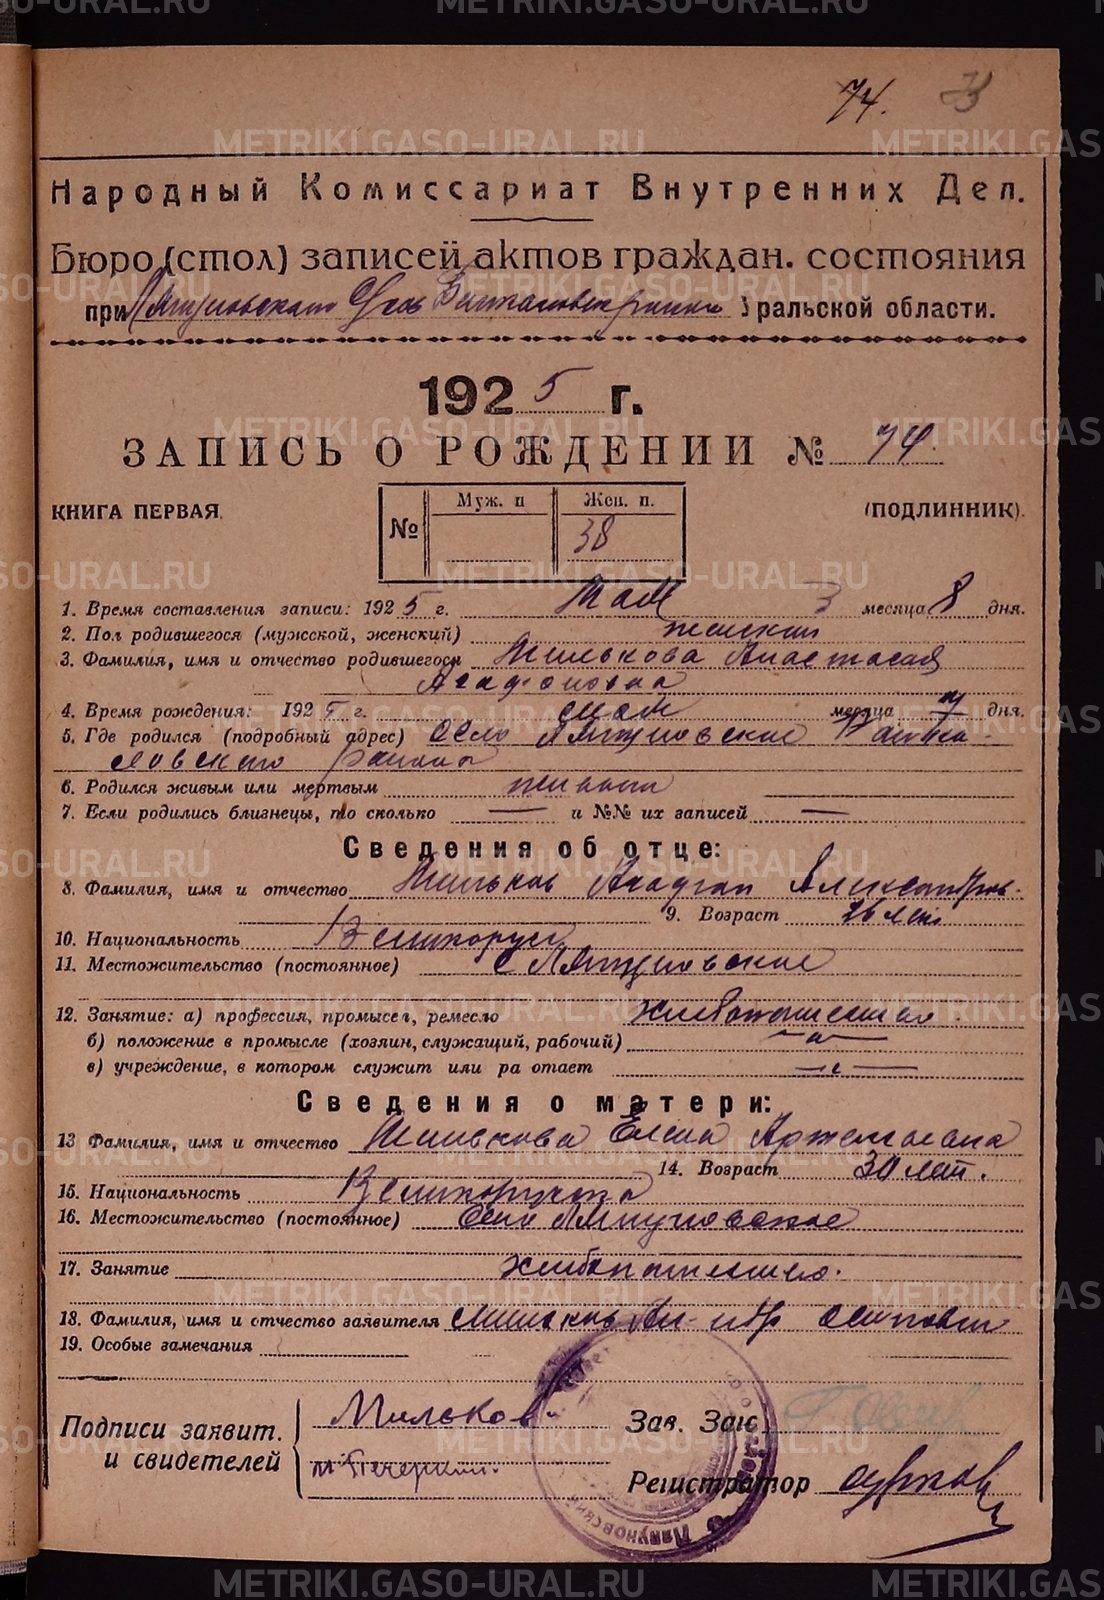 74.
Народный Комиссариат Внутренних Дел.
Бюро (стол) записей актов граждан. состояния
при Уральской области.
1925 г.
ЗАПИСЬ О РОЖДЕНИИ № 74.
КНИГА ПЕРВАЯ.
№ Муж. п Жен. п.
38
(ПОДЛИННИК).
1. Время составления записи: 1925 г. Мая 3 месяца 8 дня.
2. Пол родившегося (мужской, женский) женский
3. Фамилия, имя и отчество родившегося Милькова Анастасая
Агафоновна
4. Время рождения: 192 г. мая месяца дня.
5. Где родился (подробный адрес) Село Ляпуновское
района
6. Родился живым или мертвым живым
7. Если родились близнецы, то сколько — и №№ их записей —
Сведения об отце:
8. Фамилия, имя и отчество Мильков Агафон Александров.
9. Возраст 26 лет
10. Национальность Великорус
11. Местожительство (постоянное) с Ляпуновское
12. Занятие: а) профессия, промысел, ремесло
б) положение в промысле (хозяин, служащий, рабочий)
в) учреждение, в котором служит или ра отает
Сведения о матери:
13 Фамилия, имя и отчество Милькова Елена
14. Возраст 30 лет.
15. Национальность
16. Местожительство (постоянное) Село Ляпуновское
17. Занятие
18. Фамилия, имя и отчество заявителя Мильков
19. Особые замечания
Подписи заявит. и свидетелей
Мильков
Печеркин.
Зав. Заг.
Регистратор Сурков
METRIKI.GASO-URAL.RU